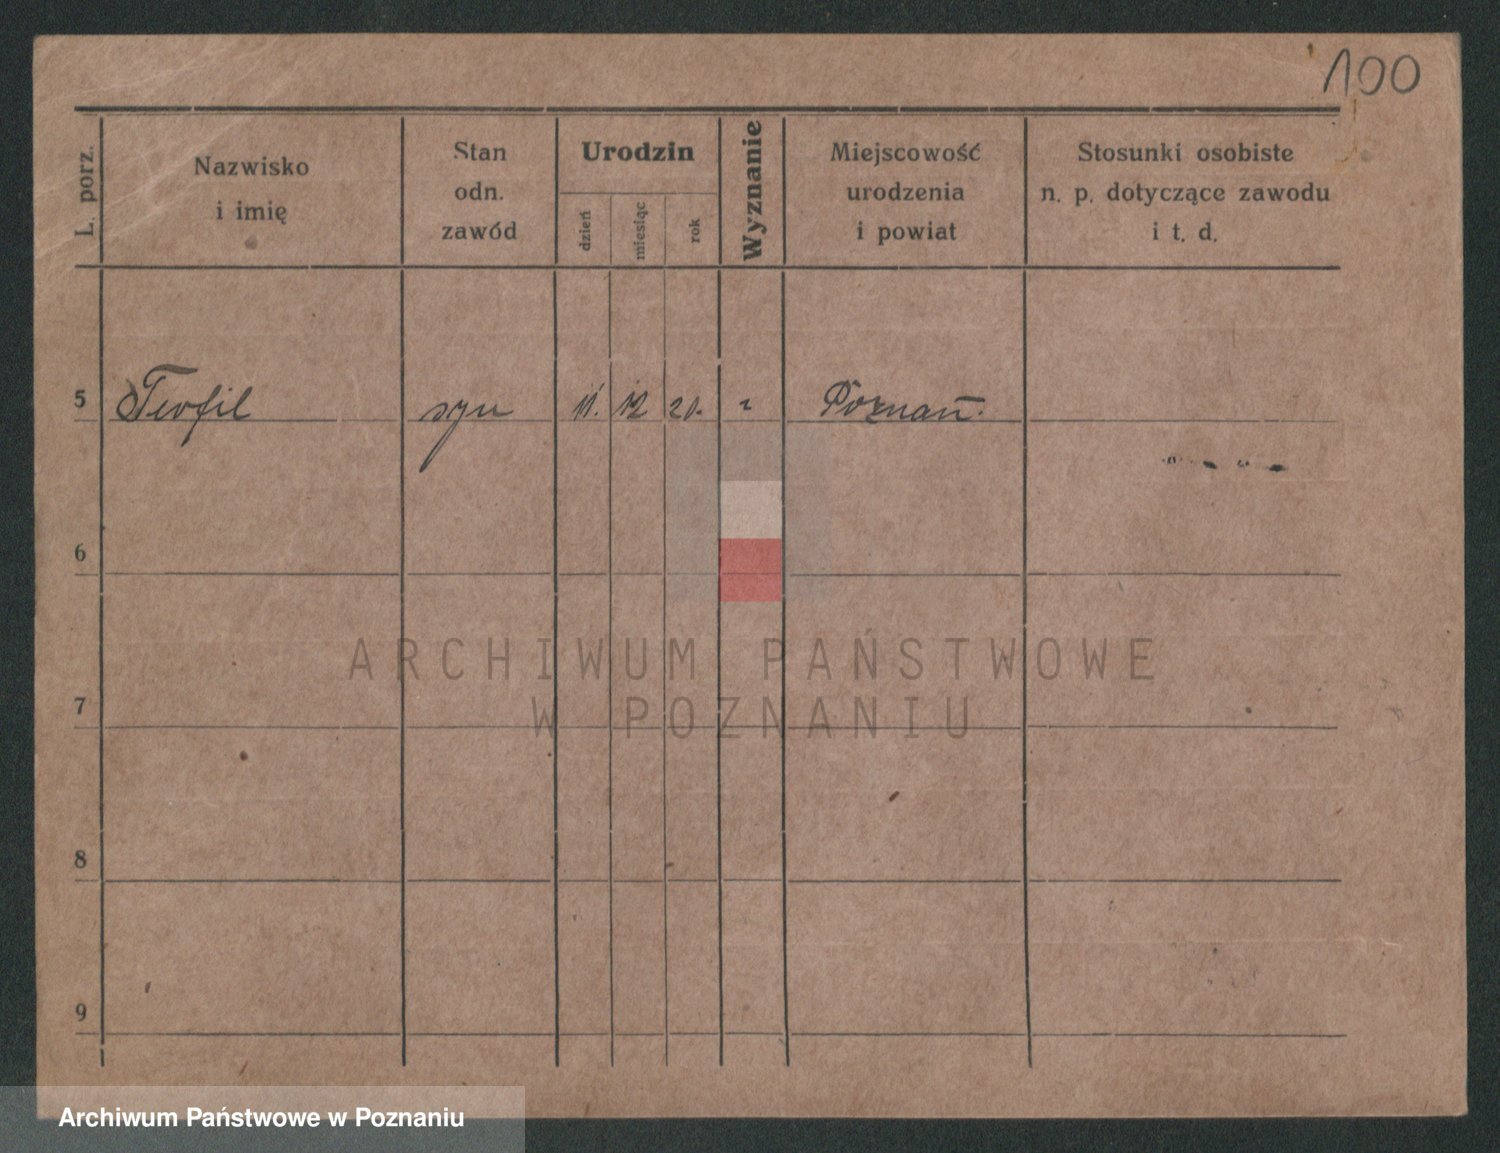 100
L. porz.
Nazwisko
i imię
Stan
odn.
zawód
Urodzin
dzień
miesiąc
rok
Wyznanie
Miejscowość
urodzenia
i powiat
Stosunki osobiste
n. p. dotyczące zawodu
i t. d.
5 Teofil syn 11. 12 20. " Poznań.
6
7
8
9
ARCHIWUM PAŃSTWOWE
W POZNANIU
Archiwum Państwowe w Poznaniu